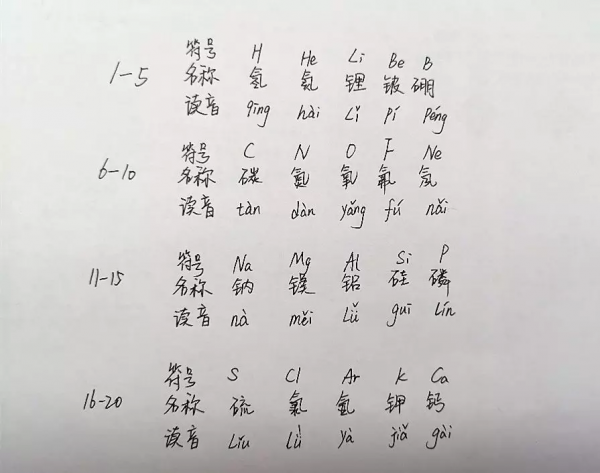 符号 H He Li Be B
1-5 名称 氢 氦 锂 铍 硼
读音 qīng hài Lǐ pí péng
符号 C N O F Ne
6-10 名称 碳 氮 氧 氟 氖
读音 tàn dàn yǎng fú nǎi
符号 Na Mg Al Si P
11-15 名称 钠 镁 铝 硅 磷
读音 nà měi Lǚ guī Lín
符号 S Cl Ar K Ca
16-20 名称 硫 氯 氩 钾 钙
读音 Liu Lǜ yà jiǎ gài